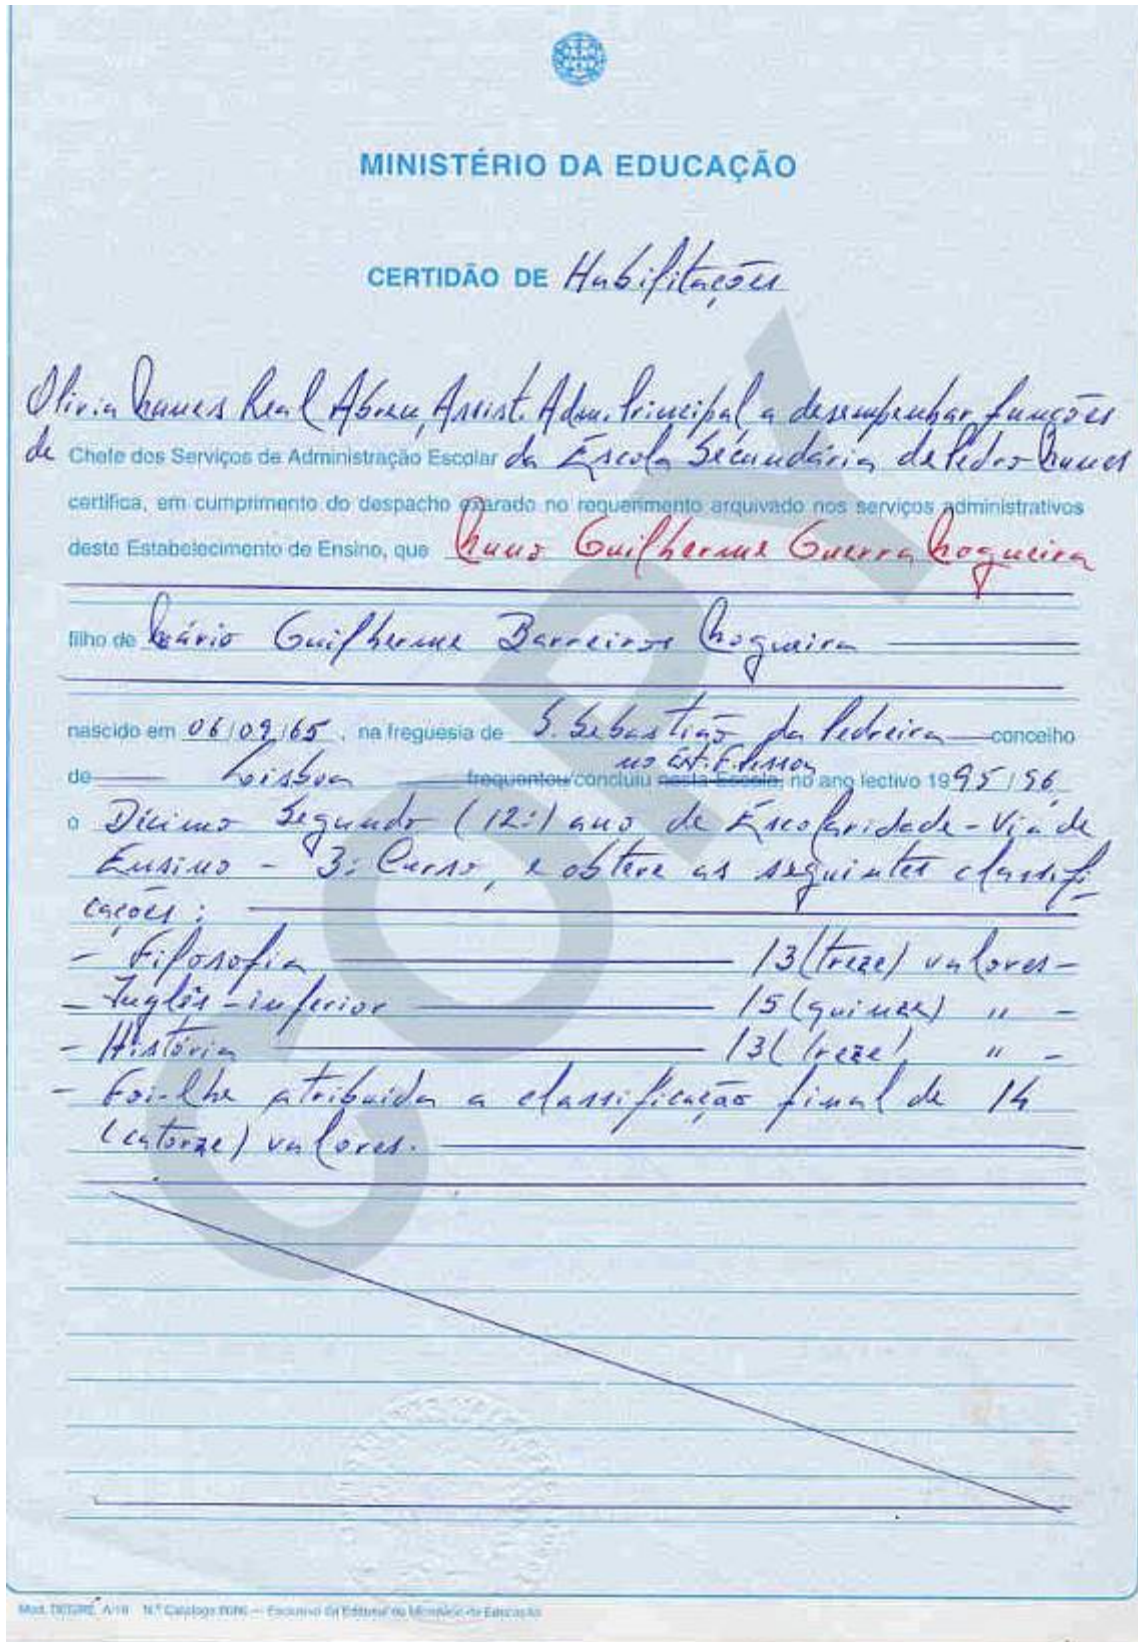 MINISTÉRIO DA EDUCAÇÃO
CERTIDÃO DE Habilitações
Olivia Nunes Real Abreu, Assist. Adm. Principal a desempenhar funções
de Chefe dos Serviços de Administração Escolar da Escola Secundária de Pedro Nunes
certifica, em cumprimento do despacho exarado no requerimento arquivado nos serviços administrativos
deste Estabelecimento de Ensino, que Nuno Guilherme Guerra Nogueira
filho de Mário Guilherme Barreiros Nogueira
nascido em 06/09/65, na freguesia de S. Sebastião da Pedreira concelho
no Ext. F. Pessoa
de Lisboa frequentou/concluiu nesta Escola, no ano lectivo 1995/96,
o Décimo Segundo (12º) ano de Escolaridade - Via de
Ensino - 3º Curso, e obteve as seguintes classifi
cações:
- Filosofia 13 (treze) valores -
- Inglês - inferior 15 (quinze) " -
- História 13 (treze) " -
- Foi-lhe atribuída a classificação final de 14
(catorze) valores.
COPY
A/16 N.º Catálogo — Exclusivo da Editorial do Ministério da Educação